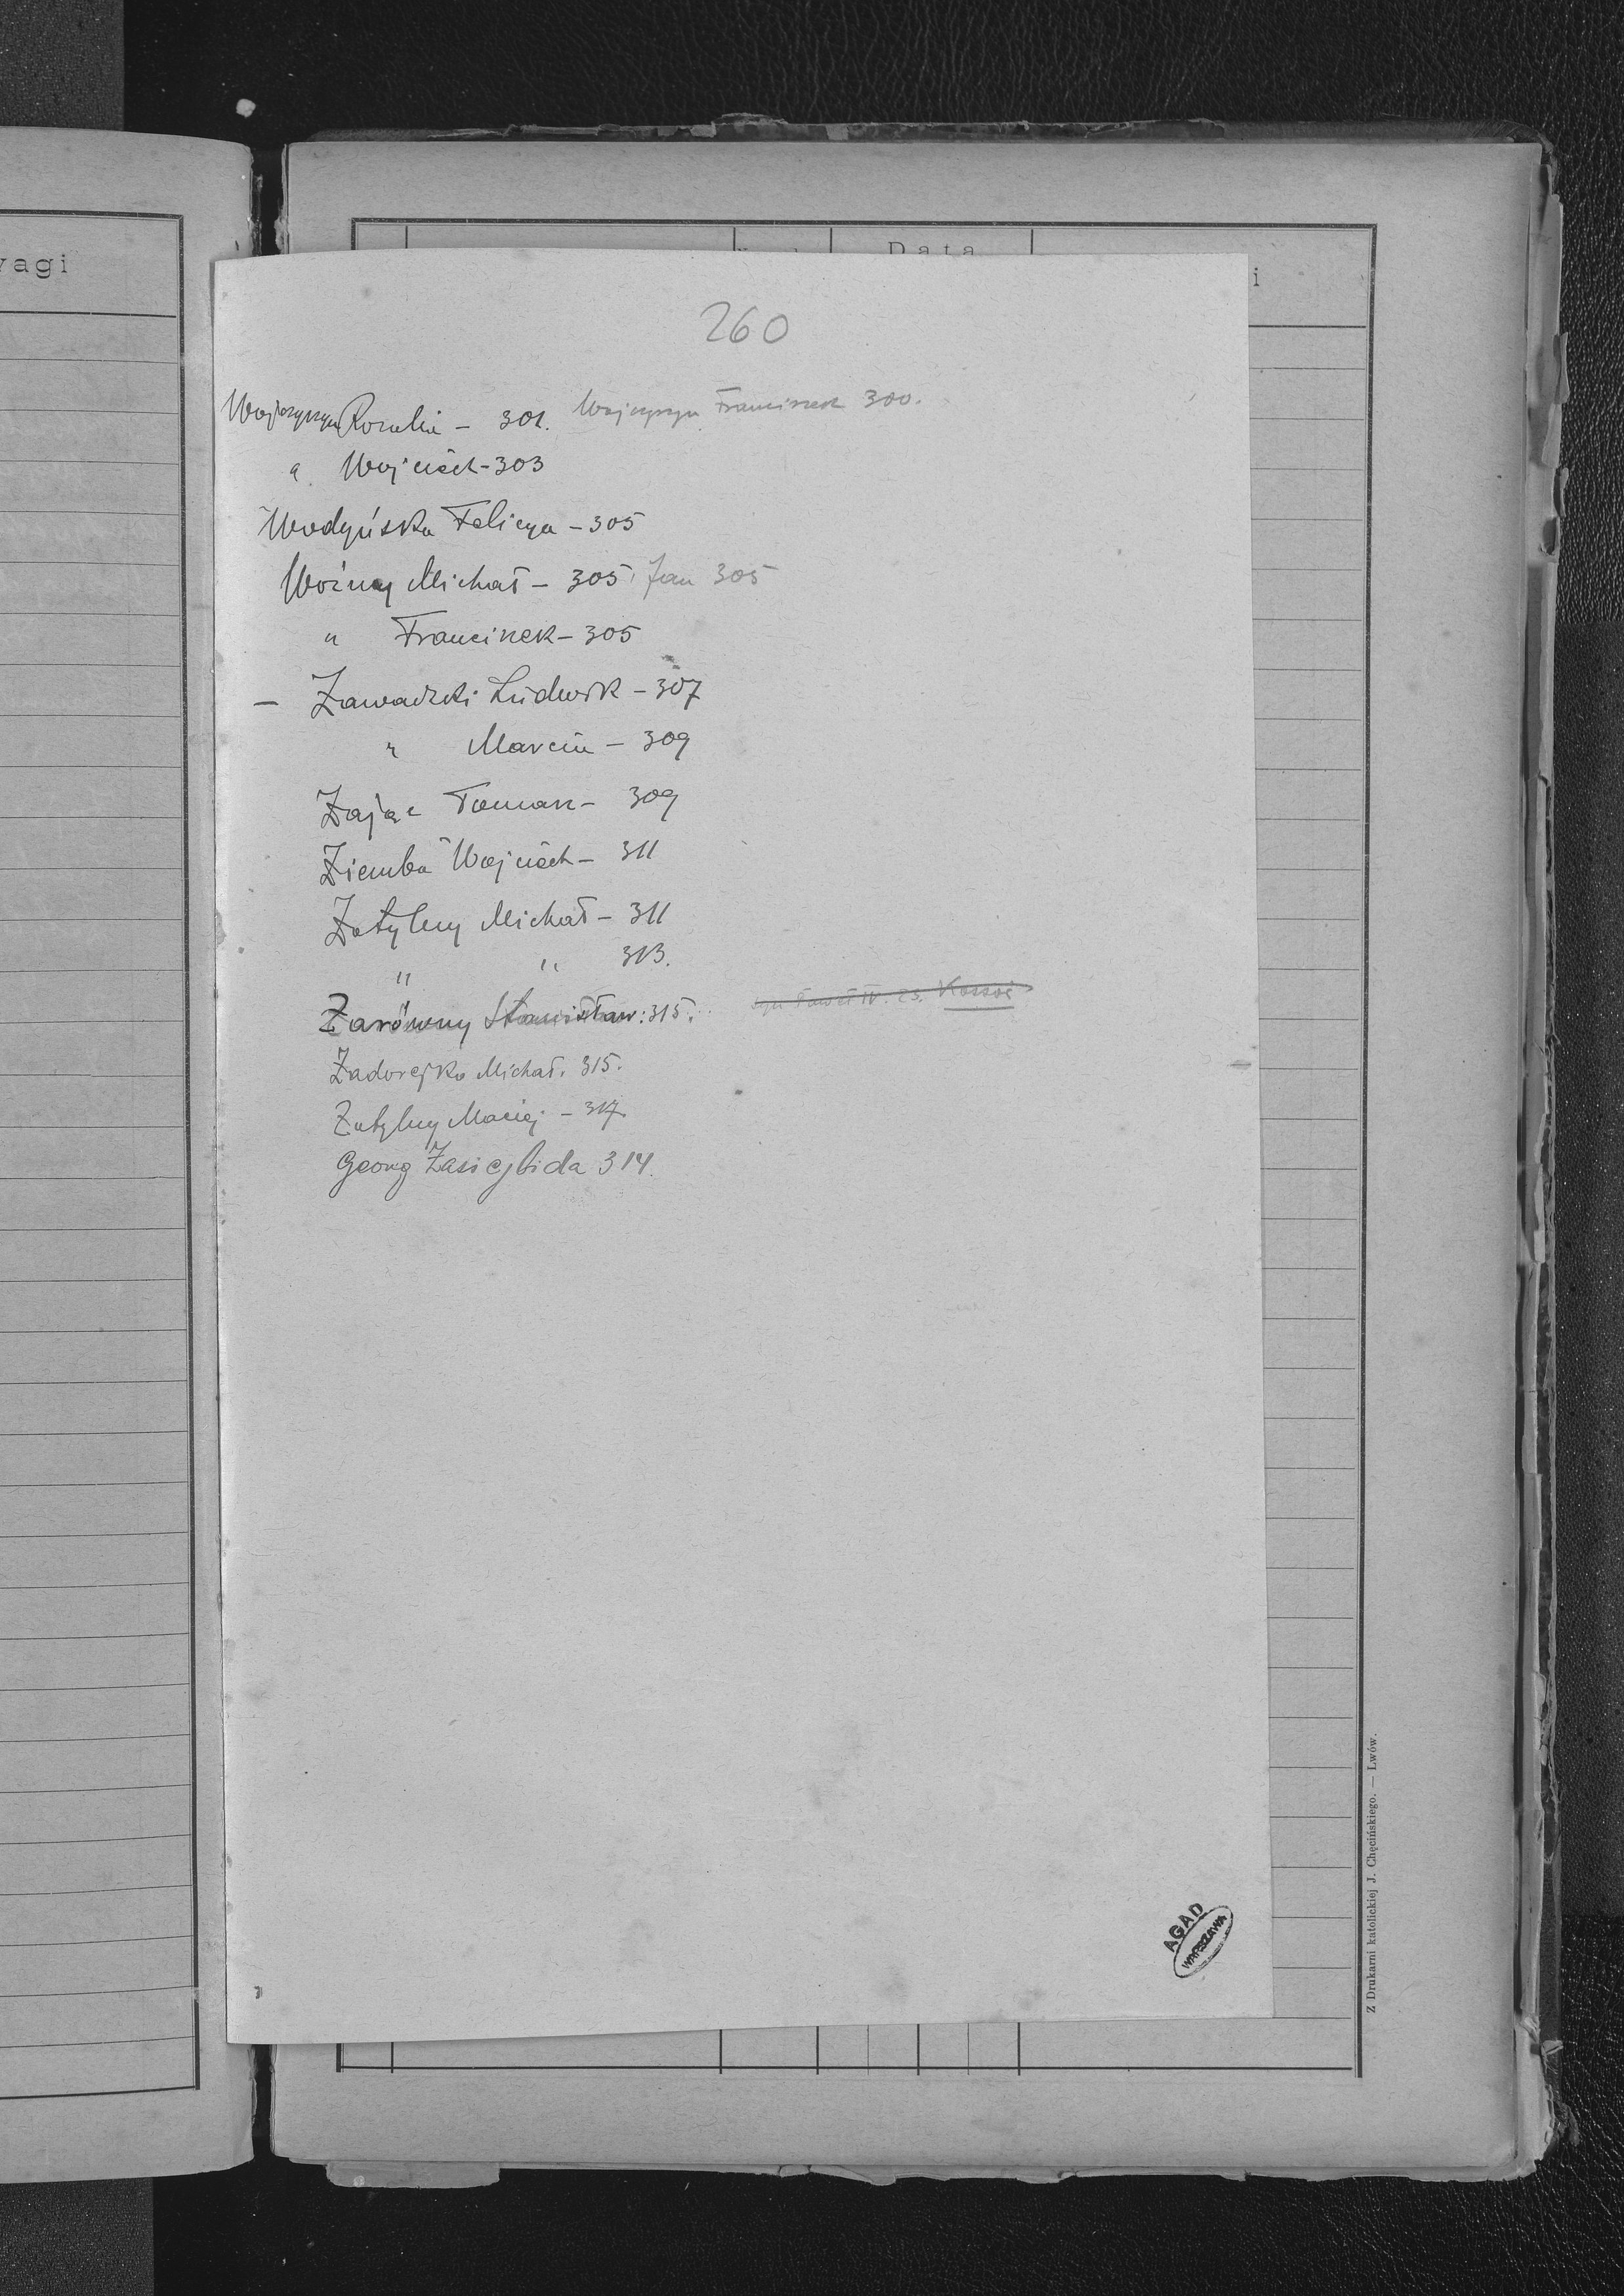 vagi
Data
i
260
Wojczyszyn Rozalia - 301. Wojczyszyn Franciszek 300.
" Wojciech - 303
Wodyńska Felicya - 305
Woźny Michał - 305, Jan 305
" Franciszek - 305
- Zawadzki Ludwik - 307
" Marcin - 309
Zając Tomasz - 309
Ziemba Wojciech - 311
Zatylny Michał - 311
" " 313.
Zarówny Stanisław: 315.
Zadorejko Michał. 315.
Zatylny Maciej - 317.
Georg Zasiejbida 314.
AGAD
WARSZAWA
Z Drukarni katolickiej J. Chęcińskiego. — Lwów.